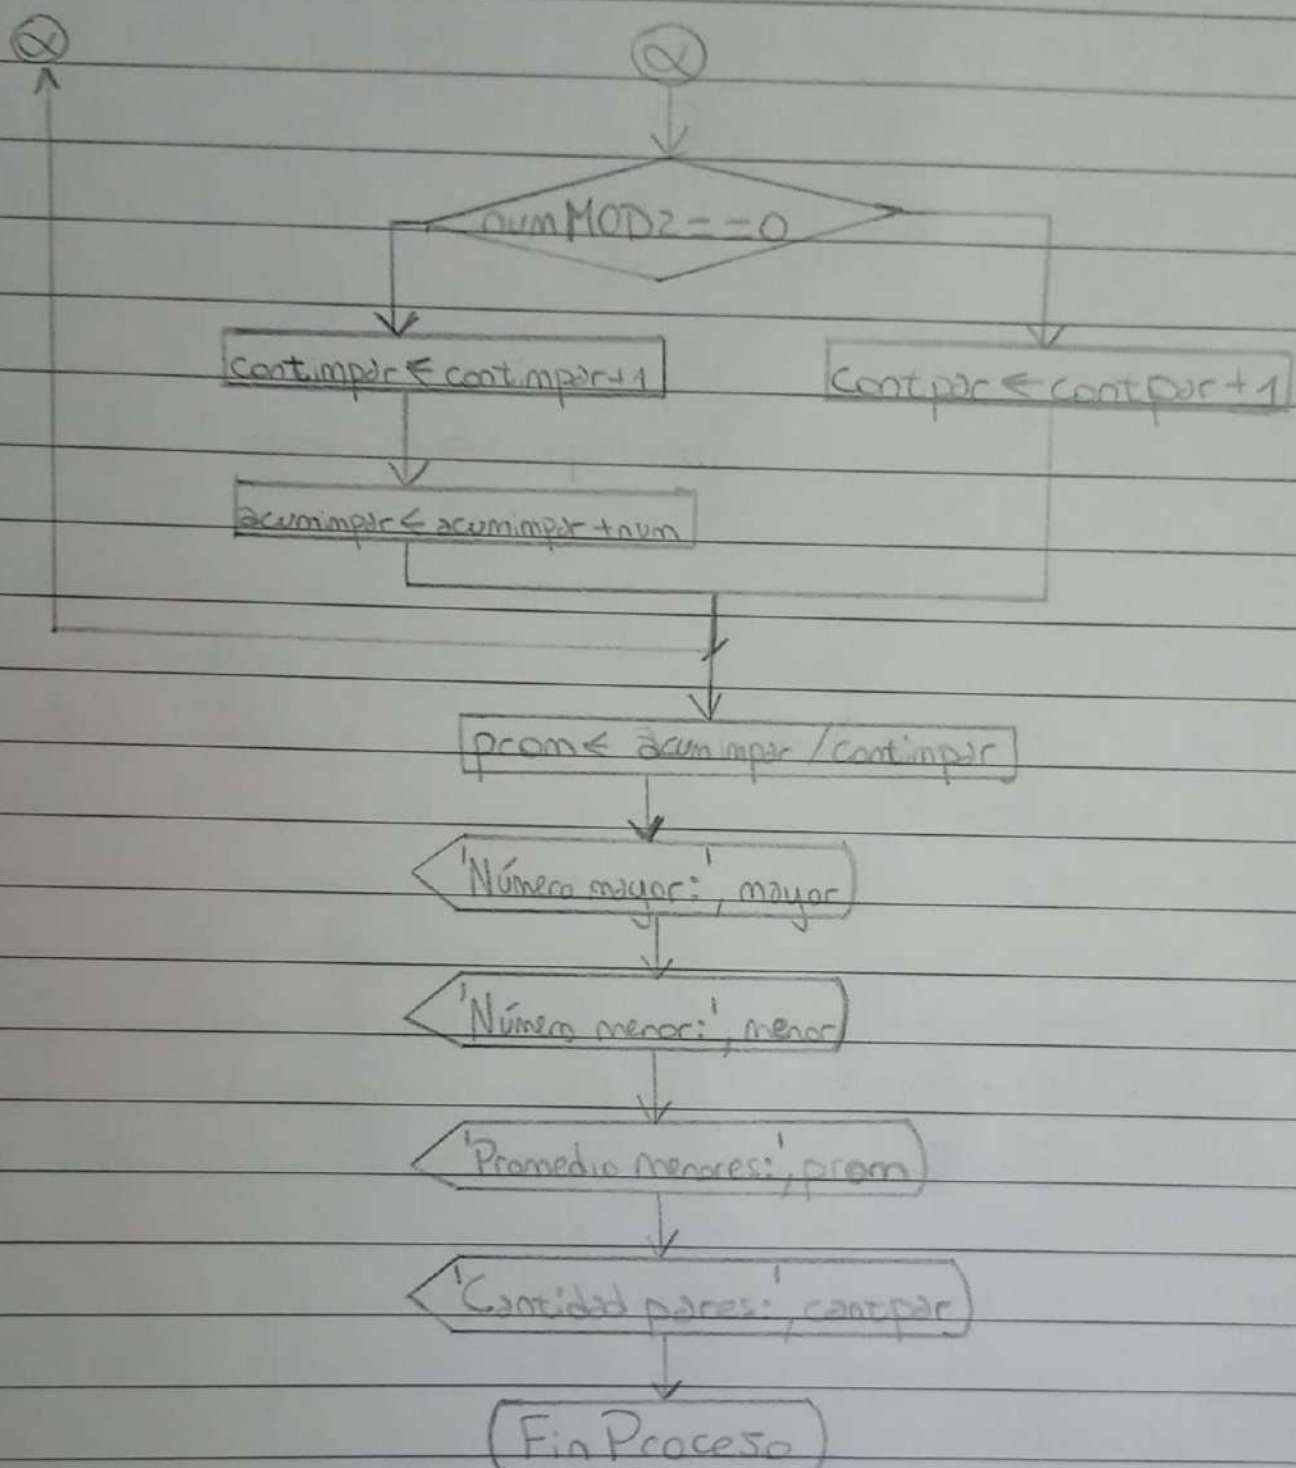 α
α
numMOD2==0
contimpar ← contimpar+1
contpar ← contpar+1
acumimpar ← acumimpar+num
prom ← acumimpar/contimpar
'Número mayor:', mayor
'Número menor:', menor
'Promedio menores:', prom
'Cantidad pares:', cantpar
FinProceso